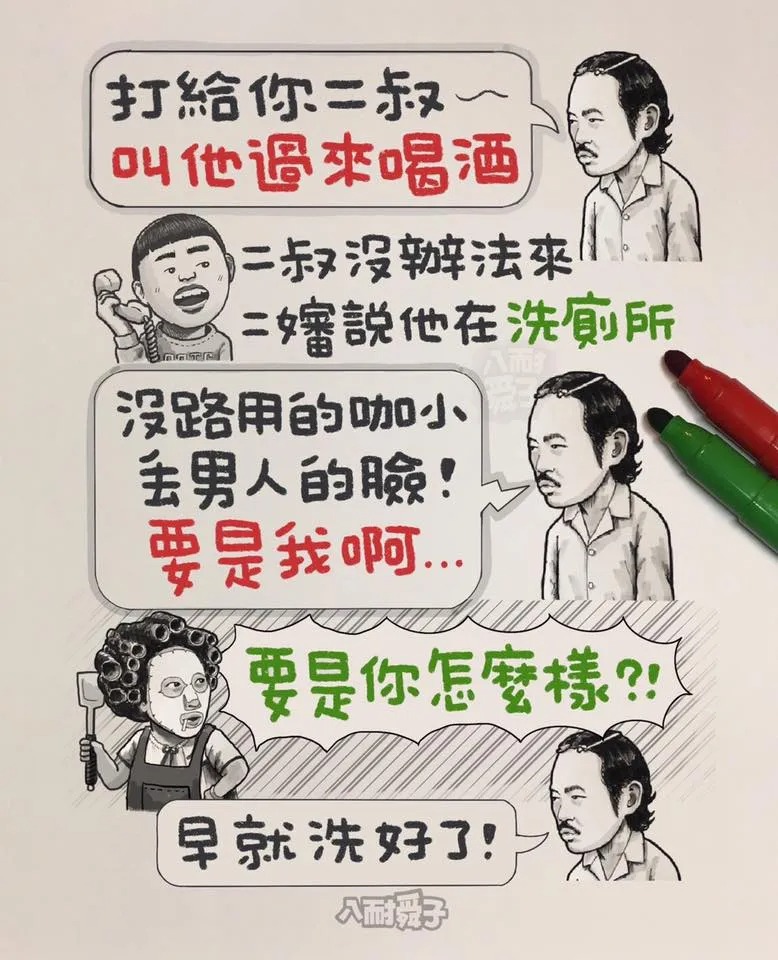 打給你二叔～
叫他過來喝酒
二叔沒辦法來
二嬸說他在洗廁所
八耐
舜子
沒路用的咖小
丟男人的臉！
要是我啊…
要是你怎麼樣？！
早就洗好了！
八耐舜子